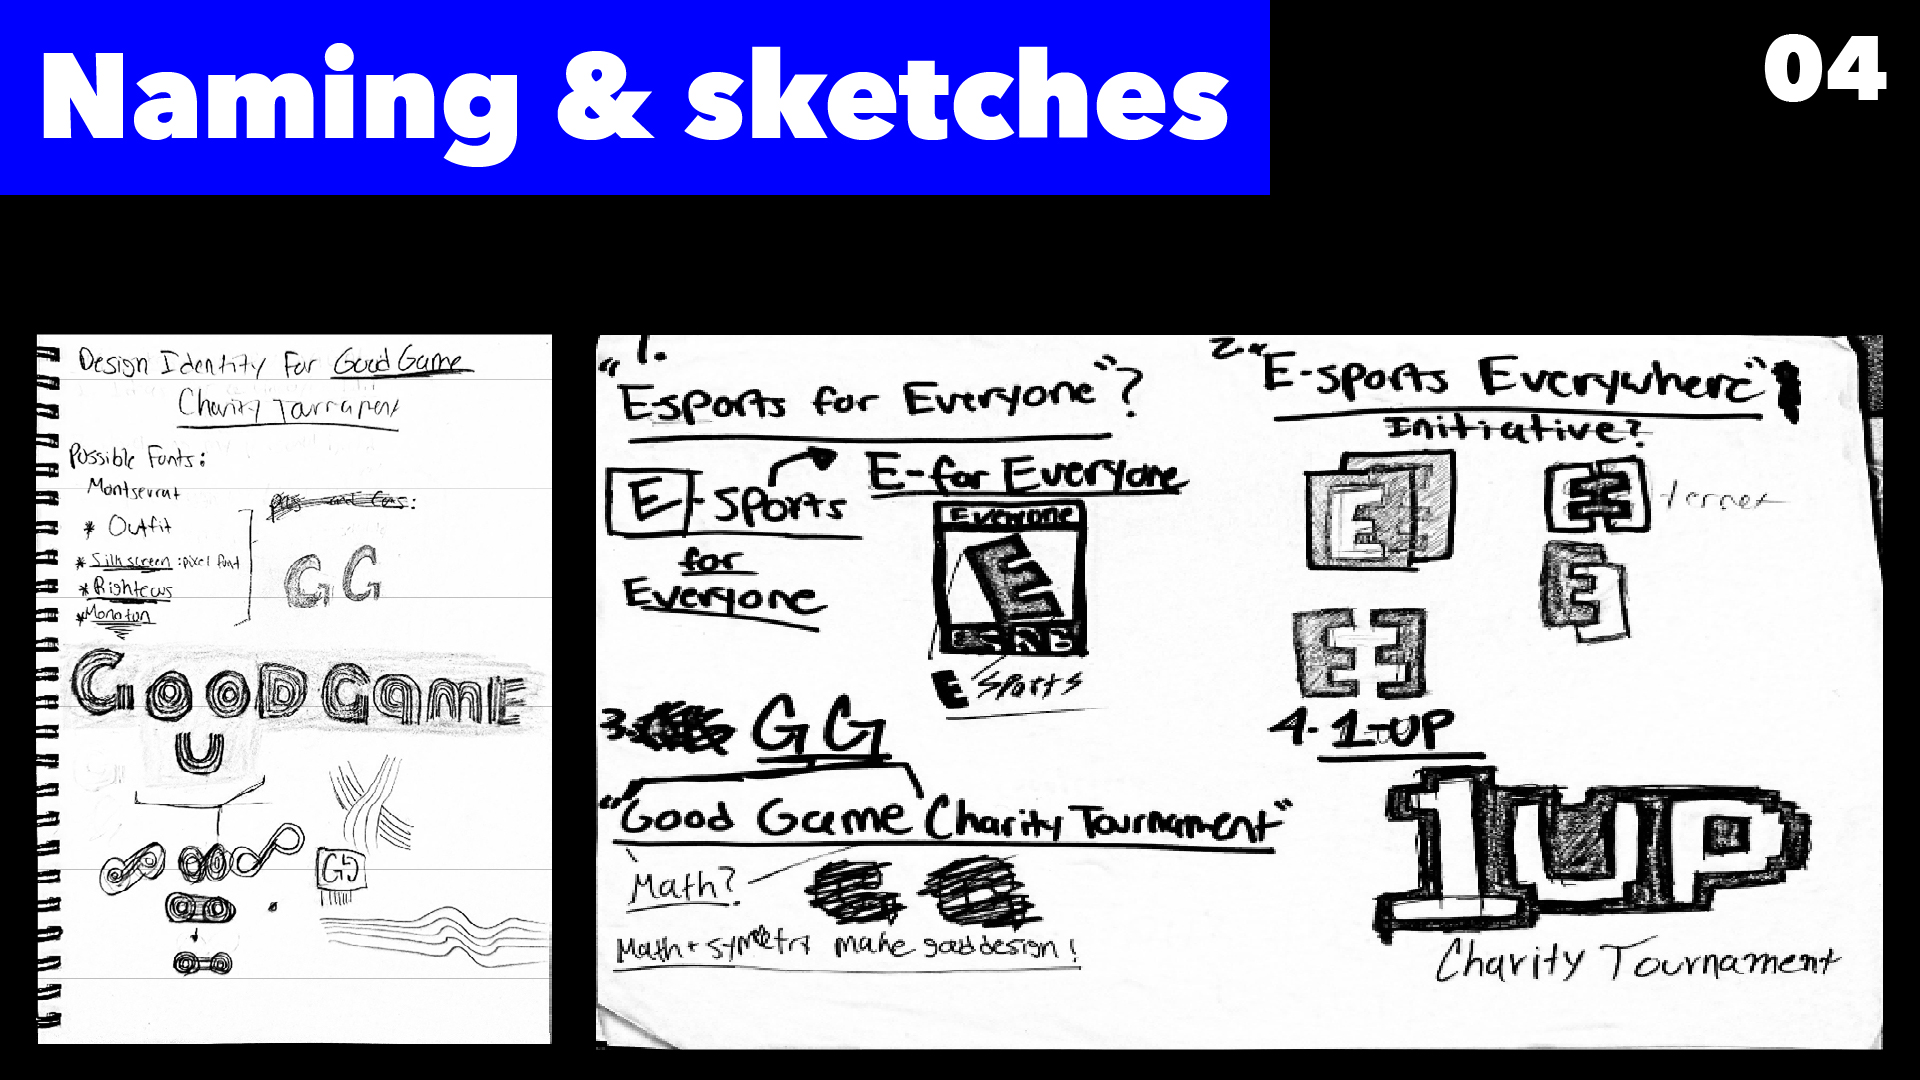 Naming & sketches
04
Design Identity For Good Game
Charity Tournament
Possible Fonts:
Montserrat
* Outfit
* Silkscreen : pixel font
* Righteous
* Monoton
GG
GOOD GAME
U
GG
1.
"Esports for Everyone"?
E-Sports
for
Everyone
E-for Everyone
Everyone
E
ESRB
E sports
2. "E-sports Everywhere"
Initiative?
E E
EE ternet
E
E E
3. GG
"Good Game Charity Tournament"
Math?
Math + symmetry make good design!
4. 1-UP
1UP
Charity Tournament